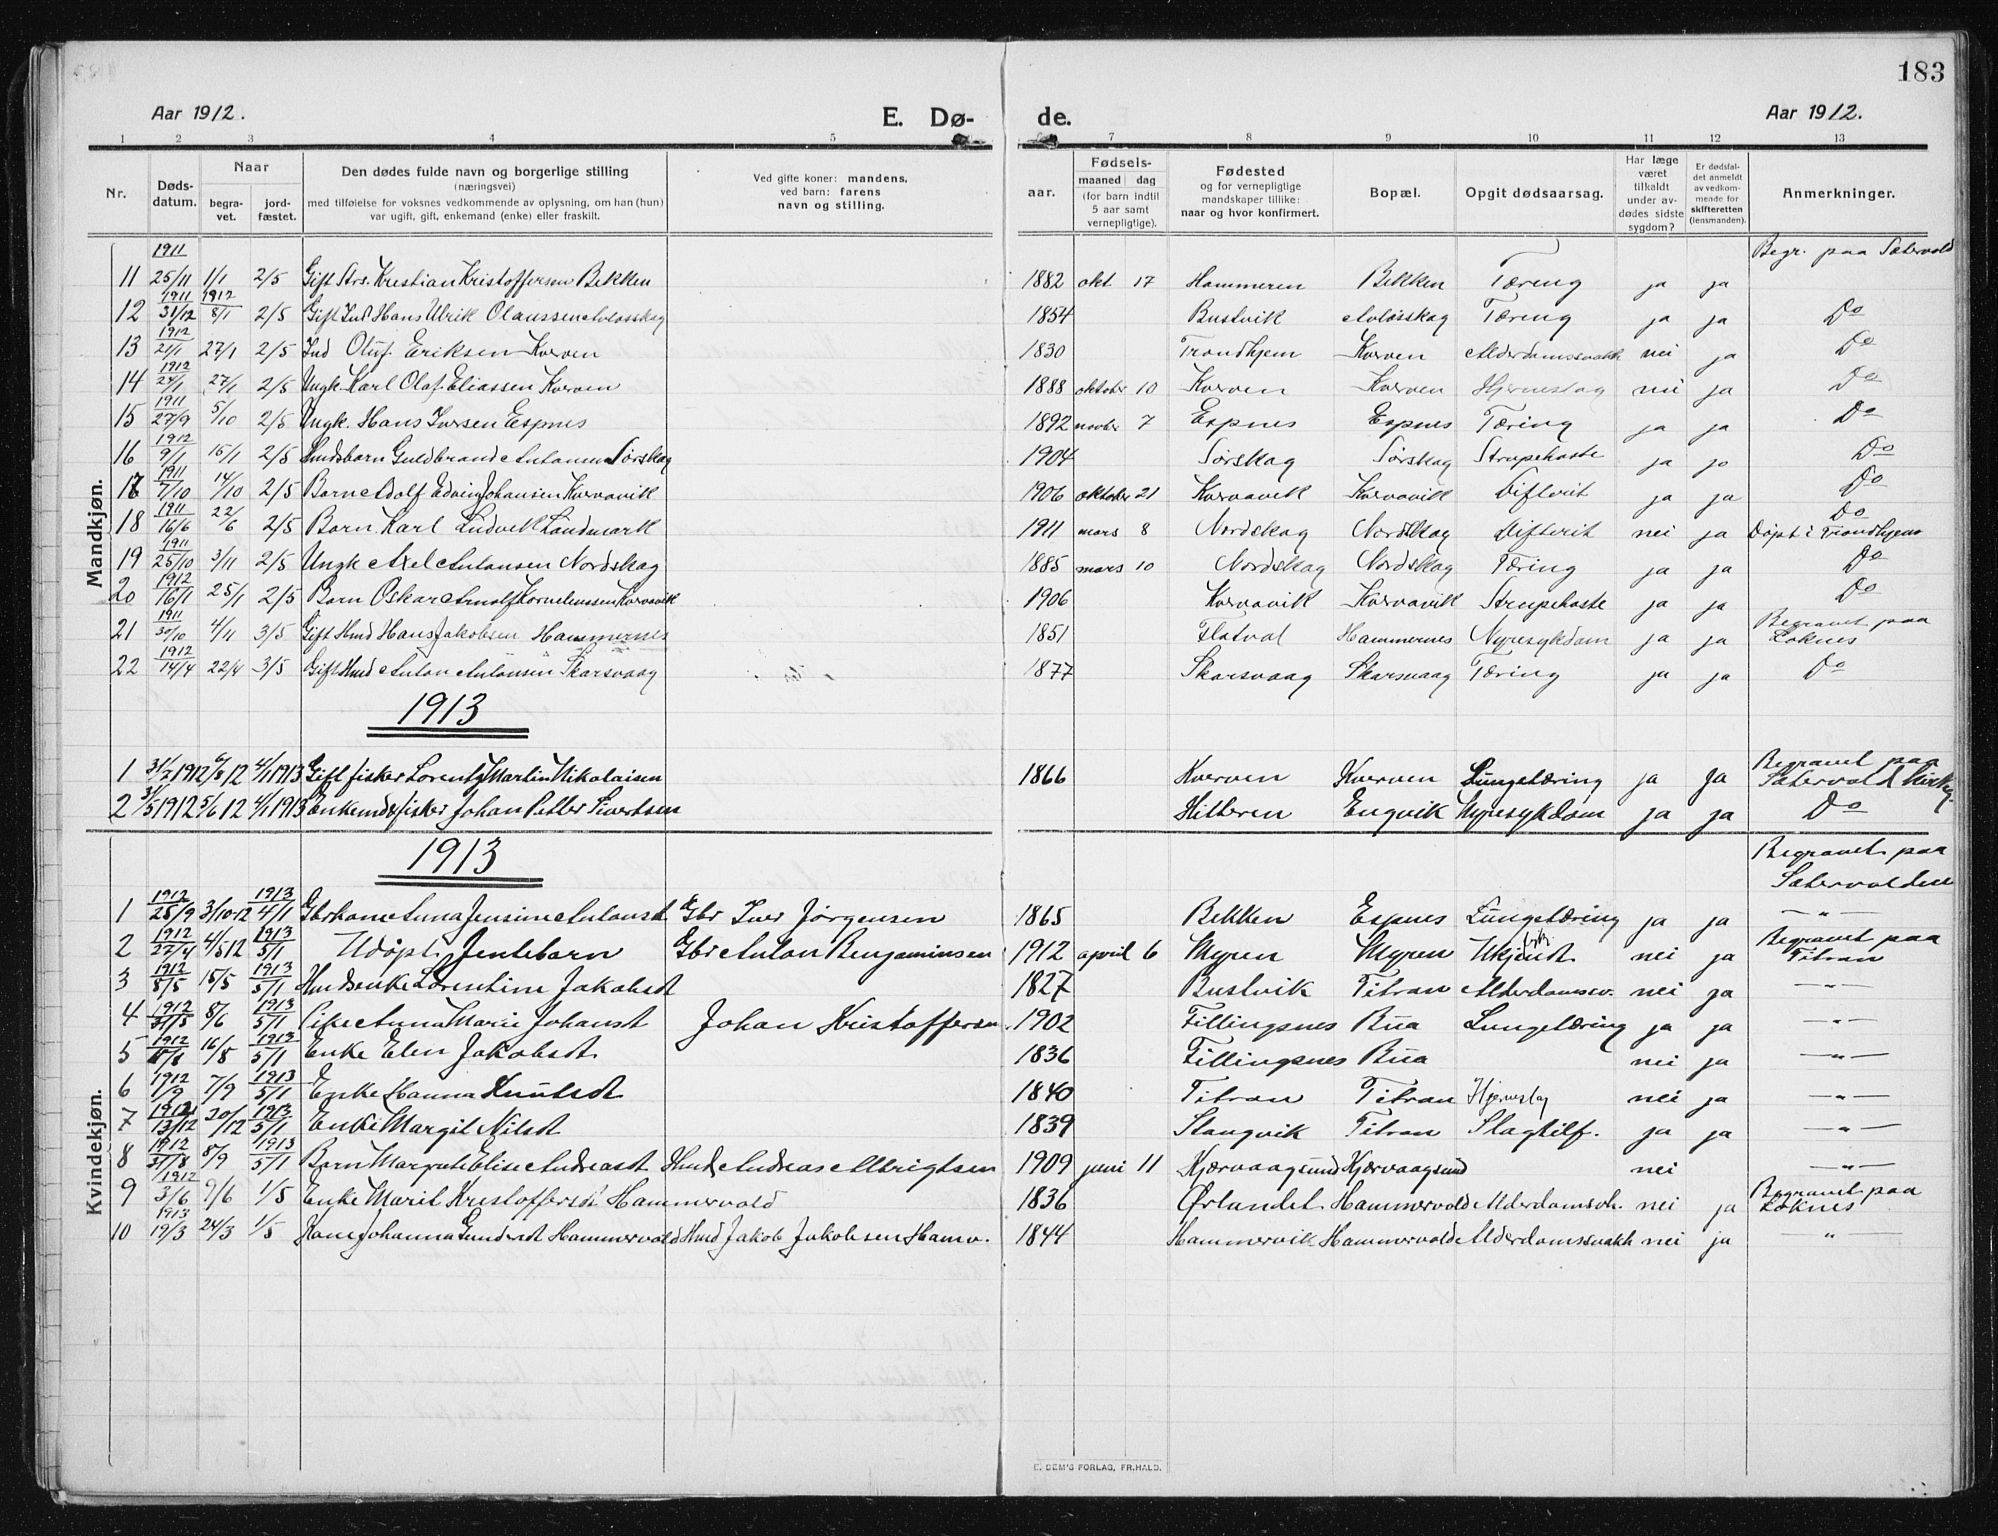 183
Aar 1912. E. Dø- de. Aar 1912.
1 2 3 4 5 7 8 9 10 11 12 13
Nr. Døds-datum. Naar begra-vet. jord-fæstet. Den dødes fulde navn og borgerlige stilling (næringsvei) med tilføielse for voksnes vedkommende av oplysning, om han (hun) var ugift, gift, enkemand (enke) eller fraskilt. Ved gifte koner: mandens, ved barn: farens navn og stilling. aar. Fødsels- maaned dag (for barn indtil 5 aar samt vernepligtige). Fødested og for vernepligtige mandskaper tillike: naar og hvor konfirmert. Bopæl. Opgit dødsaarsag. Har læge været tilkaldt under av-dødes sidste sygdom? Er dødsfal-det anmeldt av vedkom-mende for skifteretten (lensmanden). Anmerkninger.
Mandkjøn.
1911 Begr. paa Sætervold
11 25/11 1/1 2/5 Gift Strs. Kristian Kristoffersen Bekken 1882 okt 17 Hammeren Bekken Tæring ja ja
12 1911 31/12 1912 8/1 2/5 Gift Ind Hans Ulrik Olaussen Avløsskag 1854 Bustvik Avløsskag Tæring ja ja Do
13 1912 21/1 27/1 2/5 Ind Oluf Eriksen Kverven 1830 Trondhjem Kverven Alderdomssvakh nei ja Do
14 1912 24/1 27/1 2/5 Ungk. Karl Olaf Eliassen Kverven 1888 oktober 10 Kverven Kverven Hjerneslag nei ja Do
15 1911 27/9 5/10 2/5 Ungk. Hans Iversen Espnes 1892 novber 7 Espnes Espnes Tæring ja ja Do
16 1912 9/1 15/1 2/5 Husbarn Guldbrand Antonsen Sørskag 1904 Sørskag Sørskag Strupehoste ja ja Do
17 1911 7/10 14/10 2/5 Barn Adolf Edvin Johansen Kvervavik 1906 oktober 21 Kvervavik Kvervavik Difterit ja ja Do
18 1911 16/6 22/6 2/5 Barn Karl Ludvik Landmark 1911 mars 8 Nordskag Nordskag Difterit nei ja Do Døpt i Trondhjem
19 1911 25/10 3/11 2/5 Ungk Axel Antonsen Nordskag 1885 mars 10 Nordskag Nordskag Tæring ja ja Do
20 1912 16/1 25/1 2/5 Barn Oskar Arnolf Korneliussen Kvervavik 1906 Kvervavik Kvervavik Strupehoste ja ja Do
21 1911 30/10 4/11 3/5 Gift Hmd Hans Jakobsen Hammernes 1851 Flatval Hammernes Nyresykdom ja ja Begravet paa Løknes
22 1912 14/4 22/4 3/5 Gift Hmd Anton Antonsen Skarsvaag 1877 Skarsvaag Skarsvaag Tæring ja ja Do
1913
1 31/7 1912 6/8 12 4/1 1913 Gift fisker Lorentz Martin Nikolaisen 1866 Kverven Kverven Lungetæring ja ja Begravet paa Sætervold Kirkeg.
2 31/5 1912 5/6 12 4/1 1913 Enkemd fisker Johan Petter Sivertsen Hitteren Engvik Nyresykdom ja ja Do
Kvindekjøn.
1913 Begravet paa Sætervolden
1 1912 25/9 3/10-12 1913 4/1 Gbrkone Anna Jensine Antonsdt Gbr Iver Jørgensen 1865 Bekken Espnes Lungetæring ja ja —"—
2 1912 27/4 4/5 12 1913 5/1 Udøpt Jentebarn Gbr Anton Benjaminsen 1912 april 6 Myren Myren Ukjendt nei ja Begravet paa Titran
3 1912 8/5 15/5 1913 5/1 Husenke Lorentine Jakobsdt 1827 Bustvik Titran Alderdomssv. nei ja —"—
4 1912 31/5 8/6 1913 5/1 Pike Anna Marie Johansdt Johan Kristoffersen 1902 Fillingsnes Bua Lungetæring ja ja —"—
5 1912 16/8 1913 5/1 Enke Elen Jakobsdt 1836 Fillingsnes Bua nei ja —"—
6 1912 1/9 7/9 1913 5/1 Enke Hanna Knutsdt 1840 Titran Titran Hjerneslag nei ja —"—
7 1912 13/12 20/12 1913 5/1 Enke Margit Nilsdt 1839 Stangvik Titran Slagtilf. ja ja —"—
8 1912 31/8 8/9 1913 5/1 Barn Margrete Elise Andreasdt Hmd Andreas Albrigtsen 1909 juni 11 Kjærvaagsund Kjærvaagsund nei —"—
9 1912 3/6 9/6 1/5 Enke Marit Kristoffersdt Hammervold 1836 Ørlandet Hammervold Alderdomssvh. nei ja Begravet paa Løknes
10 1913 19/3 24/3 1/5 Kone Johanna Gundersdt Hammervold Hmd Jakob Jakobsen Hamv. 1844 Hammervik Hammervold Alderdomssvakh nei ja "
E. SEM'S FORLAG, FR.HALD.